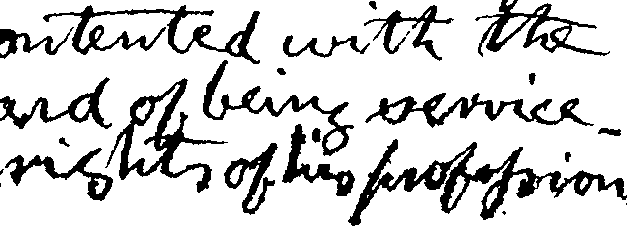 ontented with the
ard of being service-
rights of his profession